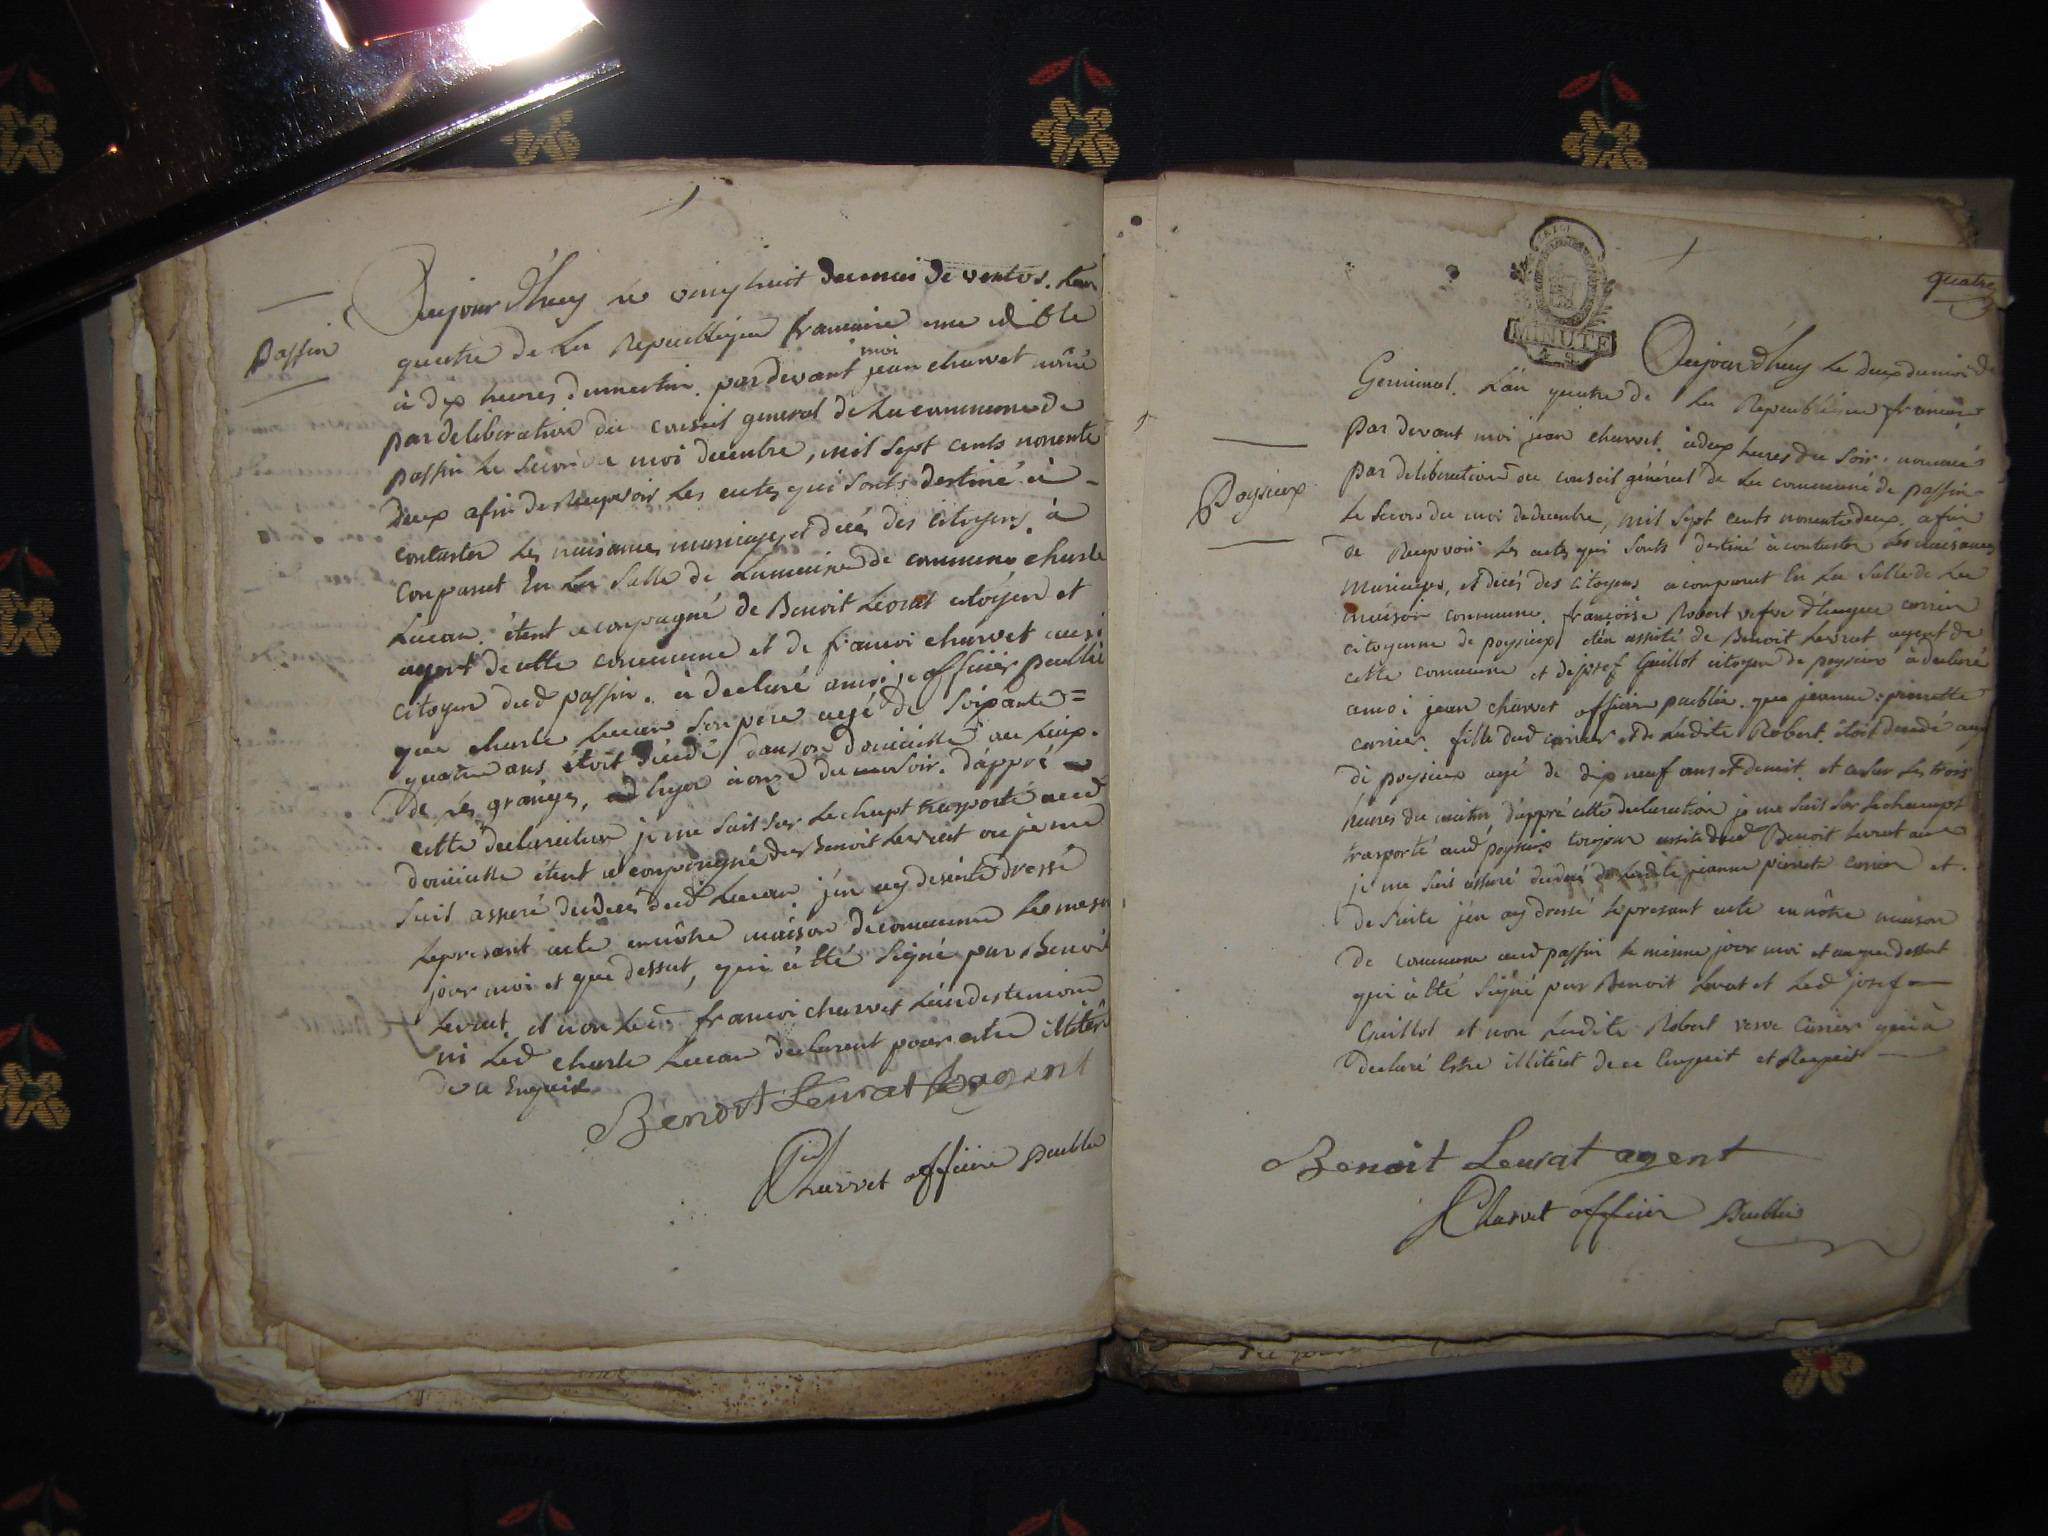 Passin
Aujourd'huy le vingthuit du mois de ventos. l'an
quatre de La Republique francaise une
à dix heures du matin. pardevant moi jean charvet
par deliberation du conseil general de La commune de
passin le second moi decembre, mil sept cents nonente
deux afin de Recepvoir Les actes qui sonts destiné à -
contaster Les naisances, mariages, et décés des citoyens, à
conparut En La Salle de La maison de commune charle
Lucan. étent aconpagné de Benoit Levrat citoyen et
agent de cette commune et de francoi charvet ausi
citoyen dud passin. à declaré a moi je officier publie
que charle Lucan son pere agé de soixante =
quatre ans étoit décédé, dans son domicille au
de Les granges, hyer à onze du soir. d'apprè
cette declaration je me suit sur Le chapt trasporté aud
domicille étent aconpangné dud Benoit Levrat ou je me
suit asseré du deces dud Lucan j'en ay de suite dressé
Le presant acte en nôtre maison de commune Le mesme
jour moi et que dessut, qui à Eté signé par Benoit
Levrat. et non Led francoi charvet L'un des temoin
ni Led charle Lucan declarent pour estre illiterè
de ce Enquit
Benoit Leurat agent
Charvet officier Publie
quatre
MINUTE
4 S.
Aujourd'huy Le deux du moi de
Germinal. L'an quatre de La Republique francaise
par devant moi jean charvet. à deux heures du soir. nommé
par deliberation du conseil général de La commune de passin
Poysieux
Le Second du moi de decembre, mil sept cents nonente deux. afin
de Recepvoir Les actes qui sonts destiné à contaster Les naisances
Mariages, et décés des citoyens a conparut En La salle de La
maison commune. francoise Robert vefve d'hugue carrier
citoyenne de poysieux, éten assisté de Benoit Levrat agent de
cette commune et de josef Guillot citoyen de poysieux à declaré
a moi jean charvet officier publie. que jeanne : pierrette
carrier. fille dud carrier et de Ladite Robert. étoit décédé aud
di poysieux agé de dix neuf ans et demit. et ce sur Les trois
heures du matin d'apprè cette declaration je me suit sur Le champt
trasporté aud poysieux toujour assité dud Benoit Levrat
je me suit asseré du décé de Ladite jeanne pierrete carrier et.
de suite j'en ay dressé Le presant acte en nôtre maison
de commune aud passin Le mesme jour moi et an que dessut
qui à Eté signé par Benoit Levrat et Led josef
Guillot et non Ladite Robert vefve Carrier qui à
declaré Estre illiterèt de ce Enquit et Requit
Benoit Leurat agent
Charvet officier Publie